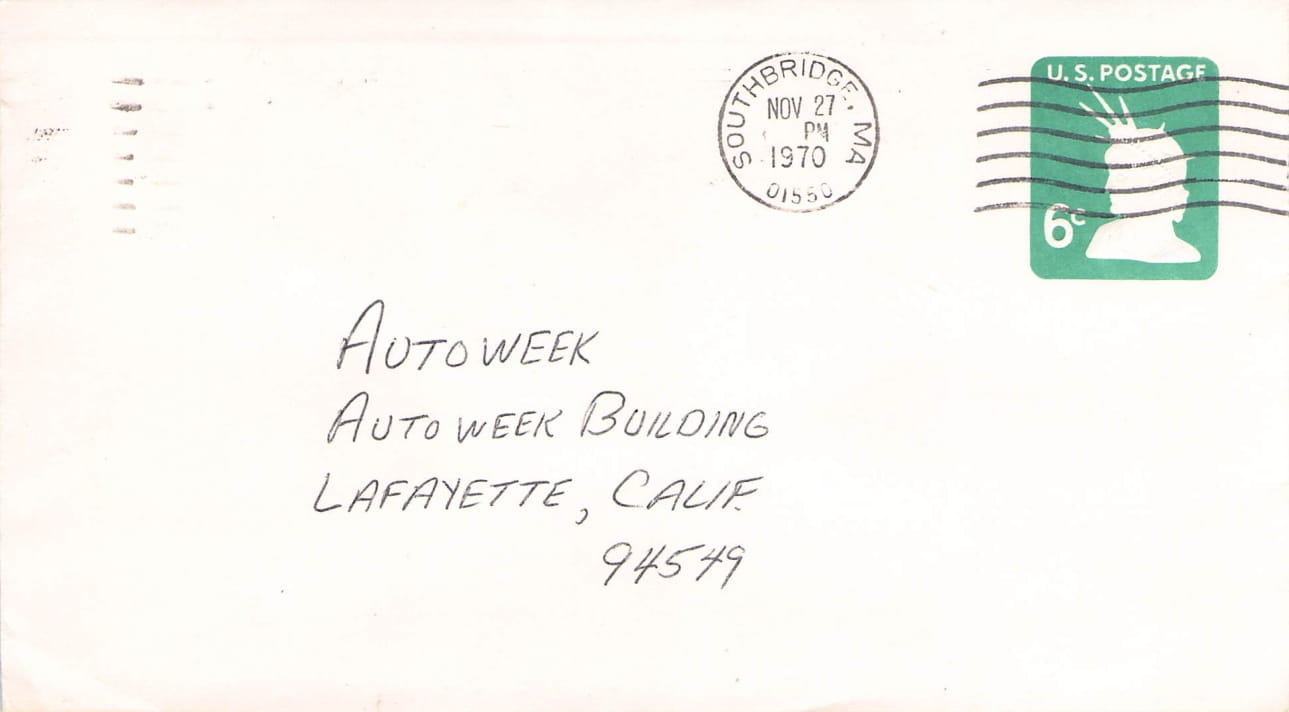 SOUTHBRIDGE, MA
NOV 27
PM
1970
01550
U. S. POSTAGE
6c
AUTOWEEK
AUTOWEEK BUILDING
LAFAYETTE, CALIF.
94549